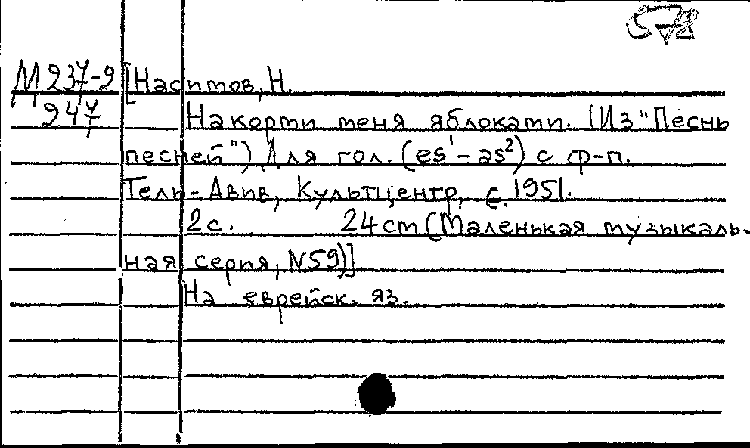 578
М 237-2 [Насимов, Н.
247 Накорми меня яблоками. (Из "Песнь
песней") Для гол. (es¹-as²) с ф-п.
Тель-Авив, Культцентр, c. 1951.
2 с. 24 cm (Маленькая музыкаль-
ная серия, N59)]
На еврейск. яз.